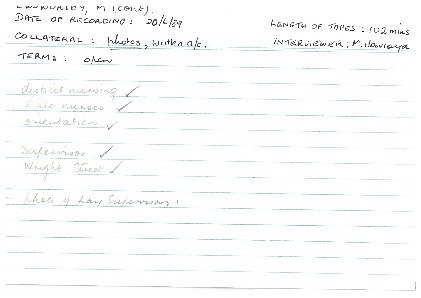 DATE OF RECORDING: 20/6/89
LENGTH OF TAPES: 102 mins
COLLATERAL: photos, written a/c.
INTERVIEWER: M.
TERMS: open
district nursing ✓
nurses ✓
orientation ✓
Supervisor ✓
Wright Street ✓
- photo of Lay Supervisor!